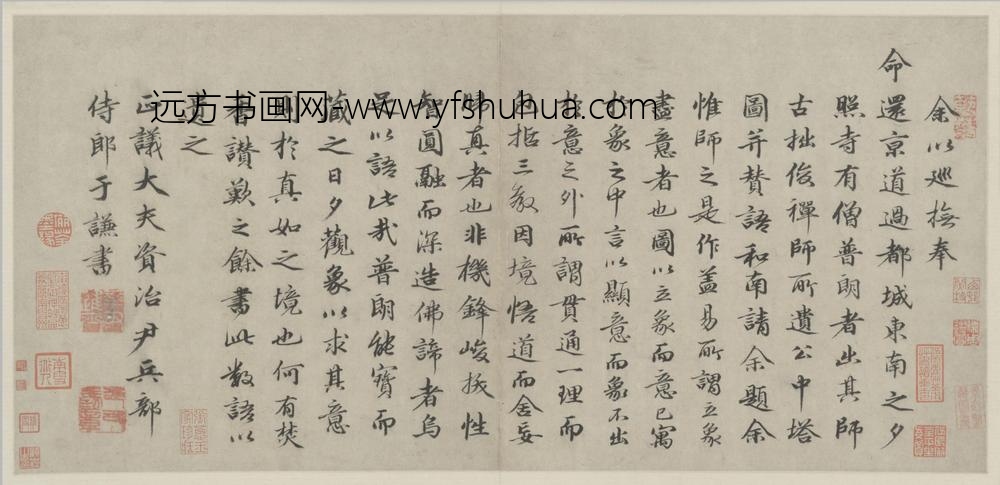 余以巡撫奉
命還京道過都城東南之夕
照寺有僧普朗者出其師
古拙俊禪師所遺公中塔
圖并贊語和南請余題余
惟師之是作盖易所謂立象
盡意者也圖以立象而意已寓
於象之中言以顯意而象不出
於意之外所謂貫通一理而
包括三教因境悟道而舍妄
歸真者也非機鋒峻拔性
智圓融而深造佛諦者烏
足以語此哉普朗能寶而
藏之日夕觀象以求其意
則於真如之境也何有焚
香讚歎之餘書此數語以
遺之
正議大夫資治尹兵部
侍郎于謙書
远方书画网-www.yfshuhua.com